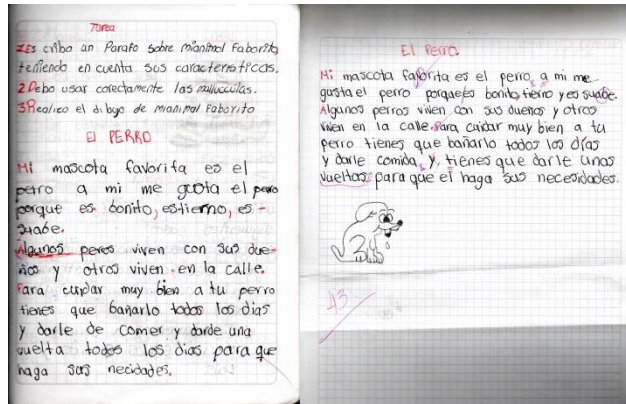 Tarea
1Es cribo un Parafo sobre mianimal Faborito
teniendo en cuenta sus caracteristicas.
2 Debo usar corectamente las
3 Realizo el dibujo de mianimal Faborito
El PERRO
Mi mascota favorita es el
perro a mi me gusta el perro
porque es bonito, estierno, es -
suabe.
Algunos peros viven con sus due-
ños y otros viven en la calle.
Para cuidar muy bien a tu perro
tienes que bañarlo todos los dias
y darle de comer y darde una
vuelta todos los dias para que
haga sas necidades.
El Perro.
Mi mascota favorita es el perro, a mi me
gusta el perro porque es bonito, tierno y es suabe.
Algunos perros viven con sus dueños y otros
viven en la calle. Para cuidar muy bien a tu
perro tienes que bañarlo todos los días
y darle comida, y, tienes que darle unas
vueltas, para que el haga sus necesidades.
43